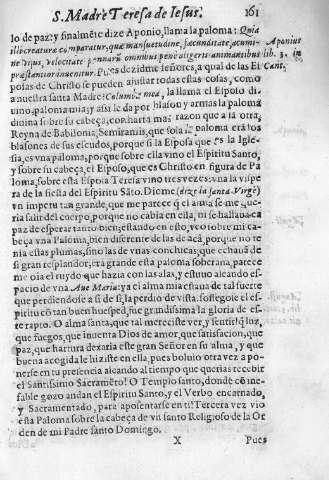 S. Madre Teresa de Iesus. 161
lo de paz: y finalmẽte dize Aponio, llama la paloma: Quia
illi creaturæ comparatur, quæ mansuetudine, fæcunditate, acumi-
ne visus, velocitate pennarũ omnibus penè aligeris animantibus
præstantior inuenitur. Pues dezidme señores, a qual de las Es
posas de Christo se pueden ajustar todas estas cosas, como
a nuestra santa Madre: Columba mea, la llama el Esposo di-
uino, paloma mia, y assi le da por blason y armas la paloma
diuina sobre su cabeça, con harta mas razon que a la otra,
Reyna de Babilonia, Semiramis, que sola la paloma era los
blasones de sus escudos, porque si la Esposa que es la Igle-
sia, es vna paloma, porque sobre ella vino el Espiritu Santo,
y sobre su cabeça, el Esposo, que es Christo en figura de Pa
loma, sobre esta Esposa Teresa vino tres vezes: vna la vispe
ra de la fiesta del Espiritu Sãto. Diome (dize la santa Virgẽ)
vn impetu tan grande, que me parece q̃ el alma se me que-
ria salir del cuerpo, porque no cabia en ella, ni se hallaua ca
paz de esperar tanto bien; estando en esto, veo sobre mi ca-
beça vna Paloma, bien diferente de las de acà, porque no te
nia estas plumas, sino las de vnas conchicas, que echauã de
si gran resplandor, era grande esta paloma soberana, parece
me oia el ruydo que hazia con las alas, y estuuo aleando es-
pacio de vna Aue Maria: y a el alma mia estaua de tal suerte
que perdiendose a si de si, la perdio de vista. sossegose el es-
piritu cõ tan buen huesped, fue grandissima la gloria de es-
te rapto. O alma santa, que tal mereciste ver, y sentir! q̃ luz,
que fuegos, que inuentã Dios de amor, que satisfacion, que
paz, que hartura dexaria este gran Señor en su alma, y que
buena acogida le hiziste en ella, pues boluio otra vez a po-
nerse en tu presencia aleando al tiempo que querias recebir
el Santissimo Sacramẽto! O Templo santo, donde cõ ine-
fable gozo andan el Espiritu Santo, y el Verbo encarnado,
y Sacramentado, para aposentarse en ti! Tercera vez vio
esta Paloma sobre la cabeça de vn santo Religioso de la Or
den de mi Padre santo Domingo.
X Pues
Aponius
lib. 3. in
Cant.